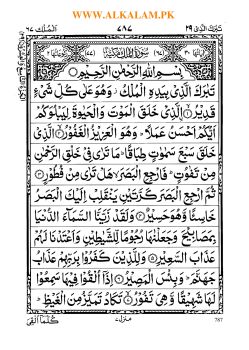 WWW.ALKALAM.PK
تبٰرک الذی ۲۹
۷۸۷
الملک ۶۷
سُوْرَةُ الْمُلْكِ مَكِّيَّةٌ
بِسْمِ اللّٰهِ الرَّحْمٰنِ الرَّحِيْمِ
تَبٰرَكَ الَّذِيْ بِيَدِهِ الْمُلْكُ ۫ وَهُوَ عَلٰى كُلِّ شَيْءٍ
قَدِيْرُ ۙ۝۱ الَّذِيْ خَلَقَ الْمَوْتَ وَالْحَيٰوةَ لِيَبْلُوَكُمْ
اَيُّكُمْ اَحْسَنُ عَمَلًا ؕ وَهُوَ الْعَزِيْزُ الْغَفُوْرُ ۙ۝۲ الَّذِيْ
خَلَقَ سَبْعَ سَمٰوٰتٍ طِبَاقًا ؕ مَا تَرٰى فِيْ خَلْقِ الرَّحْمٰنِ
مِنْ تَفٰوُتٍ ؕ فَارْجِعِ الْبَصَرَ ۙ هَلْ تَرٰى مِنْ فُطُوْرٍ ۝۳
ثُمَّ ارْجِعِ الْبَصَرَ كَرَّتَيْنِ يَنْقَلِبْ اِلَيْكَ الْبَصَرُ
خَاسِئًا وَّهُوَ حَسِيْرٌ ۝۴ وَلَقَدْ زَيَّنَّا السَّمَآءَ الدُّنْيَا
بِمَصَابِيْحَ وَجَعَلْنٰهَا رُجُوْمًا لِّلشَّيٰطِيْنِ وَاَعْتَدْنَا لَهُمْ
عَذَابَ السَّعِيْرِ ۝۵ وَلِلَّذِيْنَ كَفَرُوْا بِرَبِّهِمْ عَذَابُ
جَهَنَّمَ ؕ وَبِئْسَ الْمَصِيْرُ ۝۶ اِذَآ اُلْقُوْا فِيْهَا سَمِعُوْا
لَهَا شَهِيْقًا وَّهِيَ تَفُوْرُ ۙ۝۷ تَكَادُ تَمَيَّزُ مِنَ الْغَيْظِ ؕ
كُلَّمَآ اُلْقِيَ
منزل ۷
787